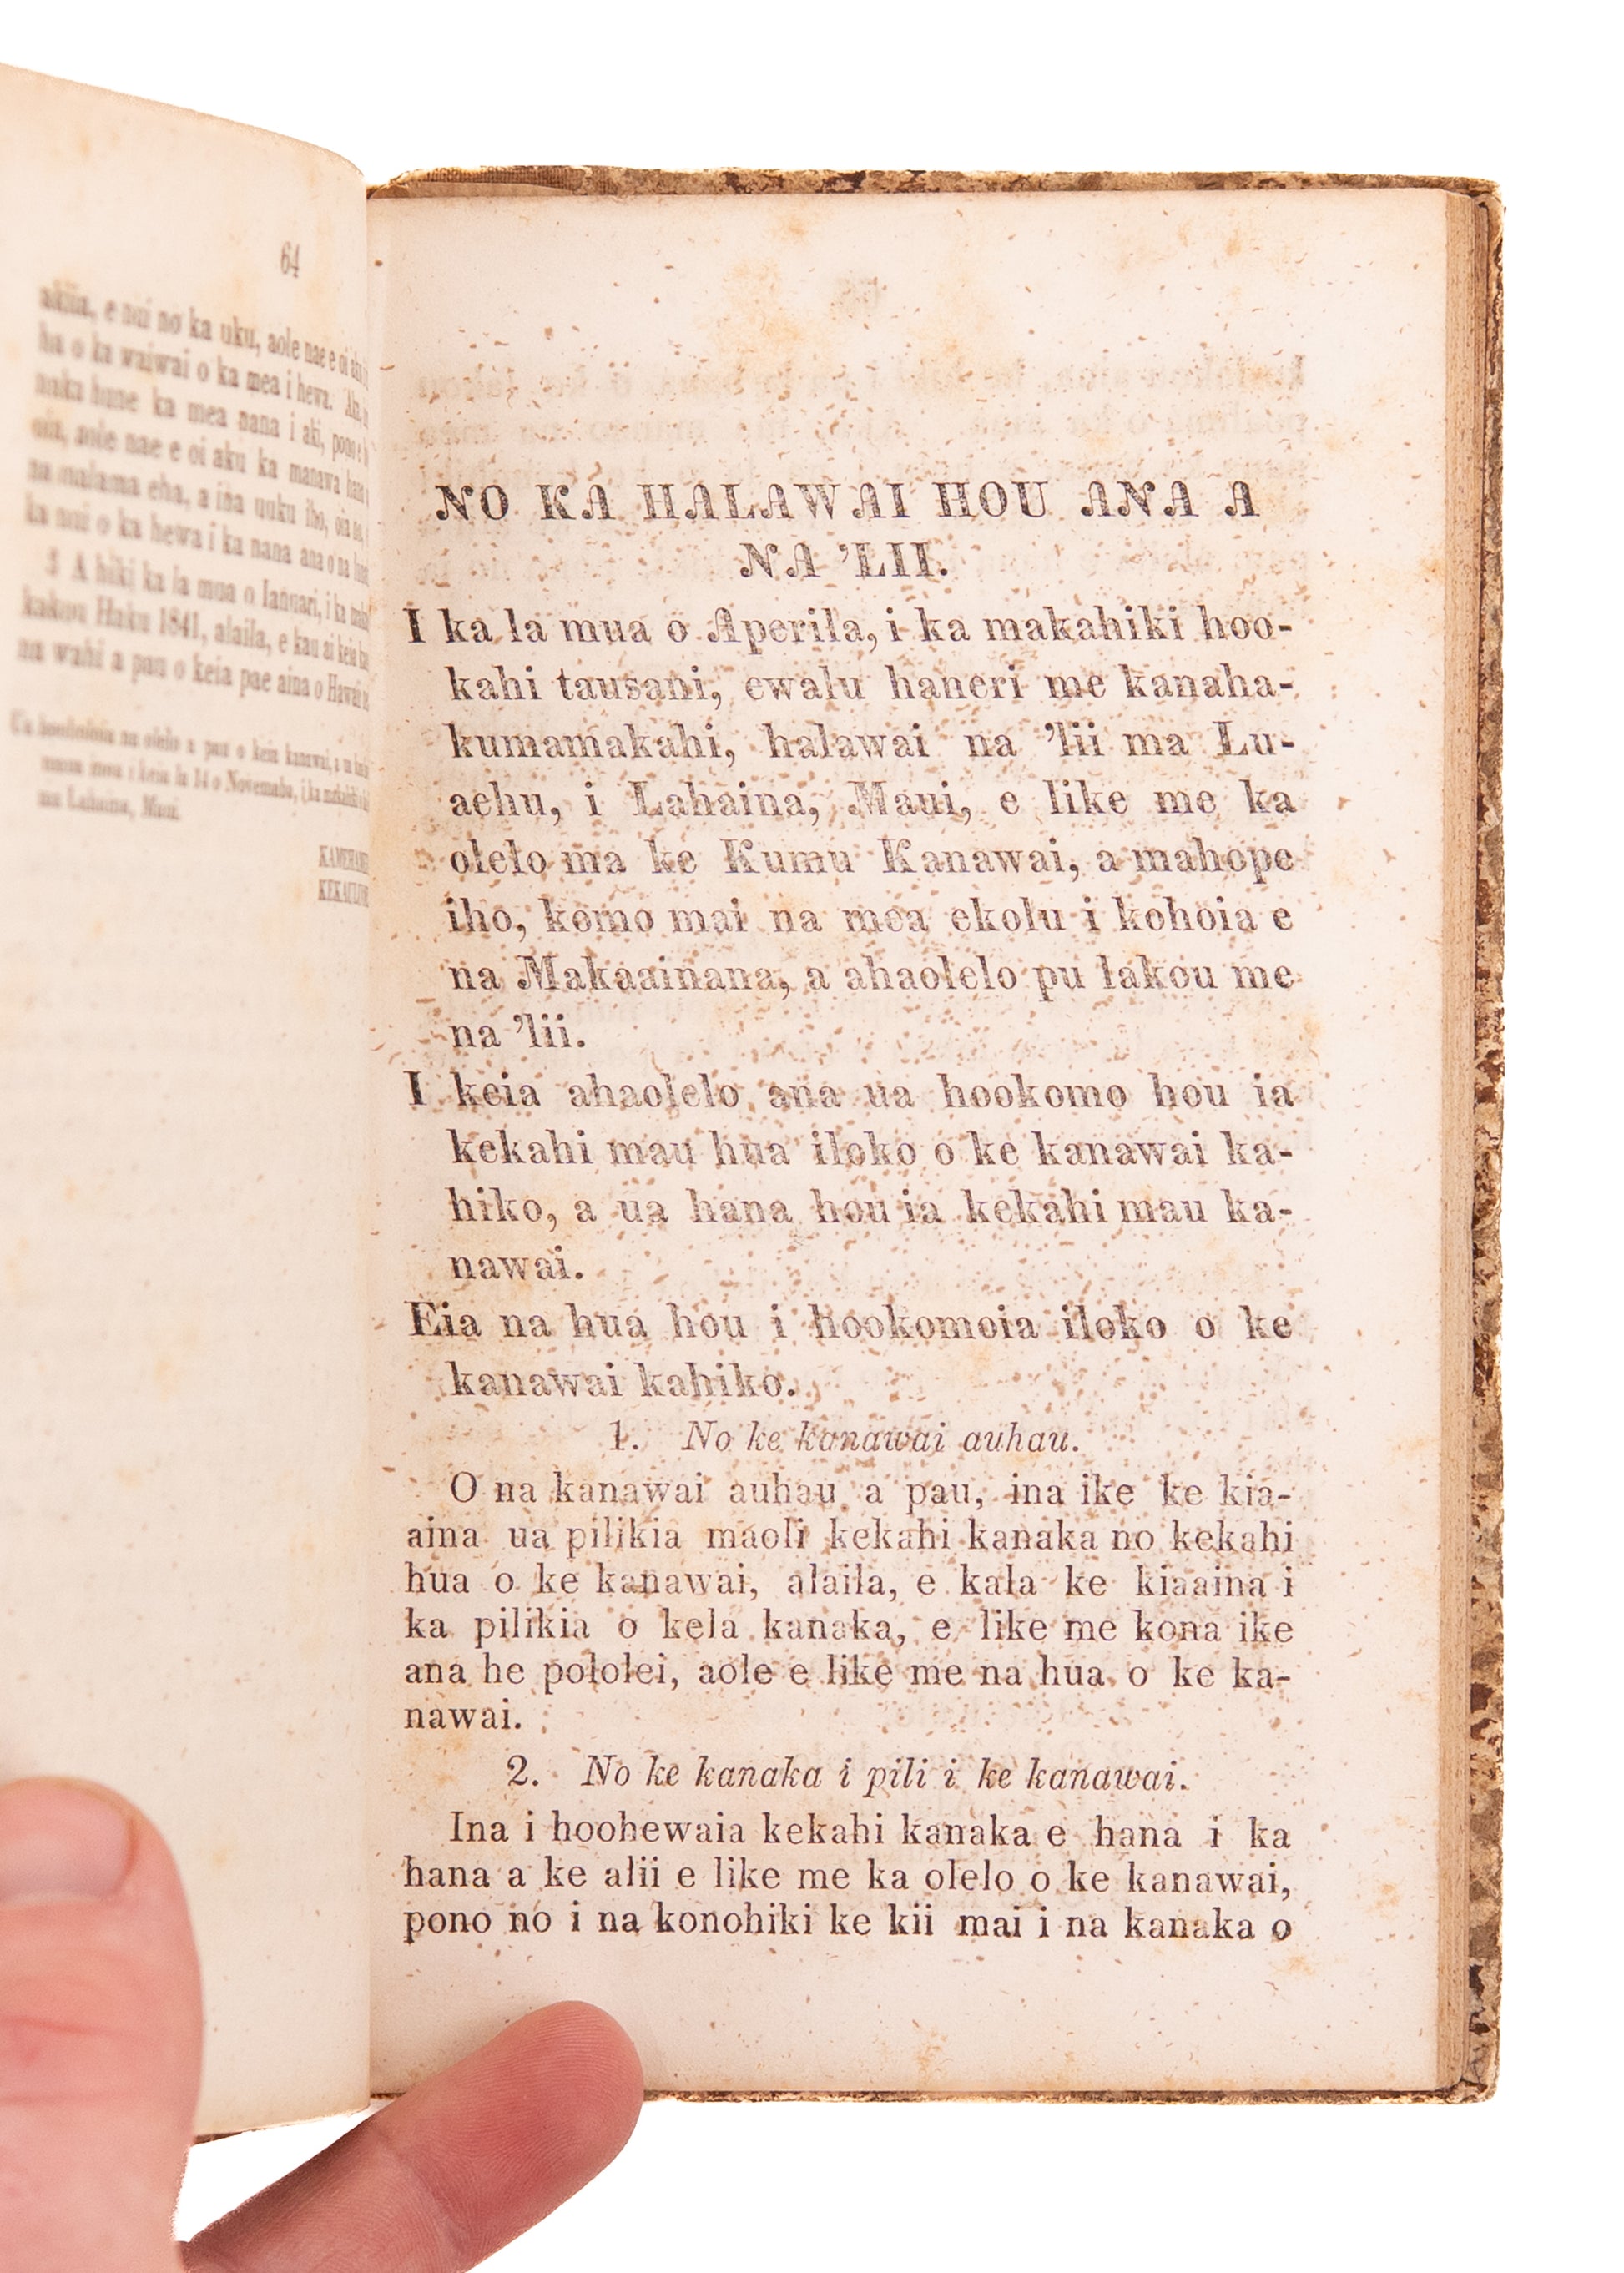 64
akiia, e nui no ka uku, aole nae e oi aku
ha o ka waiwai o ka mea i hewa.
naka hune ka mea nana i aki, pono e
oia, aole nae e oi aku ka manawa hana
na malama eha, a ina uuku iho, oia no,
ka nui o ka hewa i ka nana ana o na
5 A hiki ka la mua o Ianuari, i ka
kakou Haku 1841, alaila, e kau ai keia
na wahi a pau o keia pae aina o Hawaii
Ua hooholoia na olelo a pau o keia kanawai, a ua
inoa i keia la 14 o Novemaba, i ka
ma Lahaina, Maui.
NO KA HALAWAI HOU ANA A
NA 'LII.
I ka la mua o Aperila, i ka makahiki hoo-
kahi tausani, ewalu haneri me kanaha-
kumamakahi, halawai na 'lii ma Lu-
aehu, i Lahaina, Maui, e like me ka
olelo ma ke Kumu Kanawai, a mahope
iho, komo mai na mea ekolu i kohoia e
na Makaainana, a ahaolelo pu lakou me
na 'lii.
I keia ahaolelo ana ua hookomo hou ia
kekahi mau hua iloko o ke kanawai ka-
hiko, a ua hana hou ia kekahi mau ka-
nawai.
Eia na hua hou i hookomoia iloko o ke
kanawai kahiko.
1. No ke kanawai auhau.
O na kanawai auhau a pau, ina ike ke kia-
aina ua pilikia maoli kekahi kanaka no kekahi
hua o ke kanawai, alaila, e kala ke kiaaina i
ka pilikia o kela kanaka, e like me kona ike
ana he pololei, aole e like me na hua o ke ka-
nawai.
2. No ke kanaka i pili i ke kanawai.
Ina i hoohewaia kekahi kanaka e hana i ka
hana a ke alii e like me ka olelo o ke kanawai,
pono no i na konohiki ke kii mai i na kanaka o